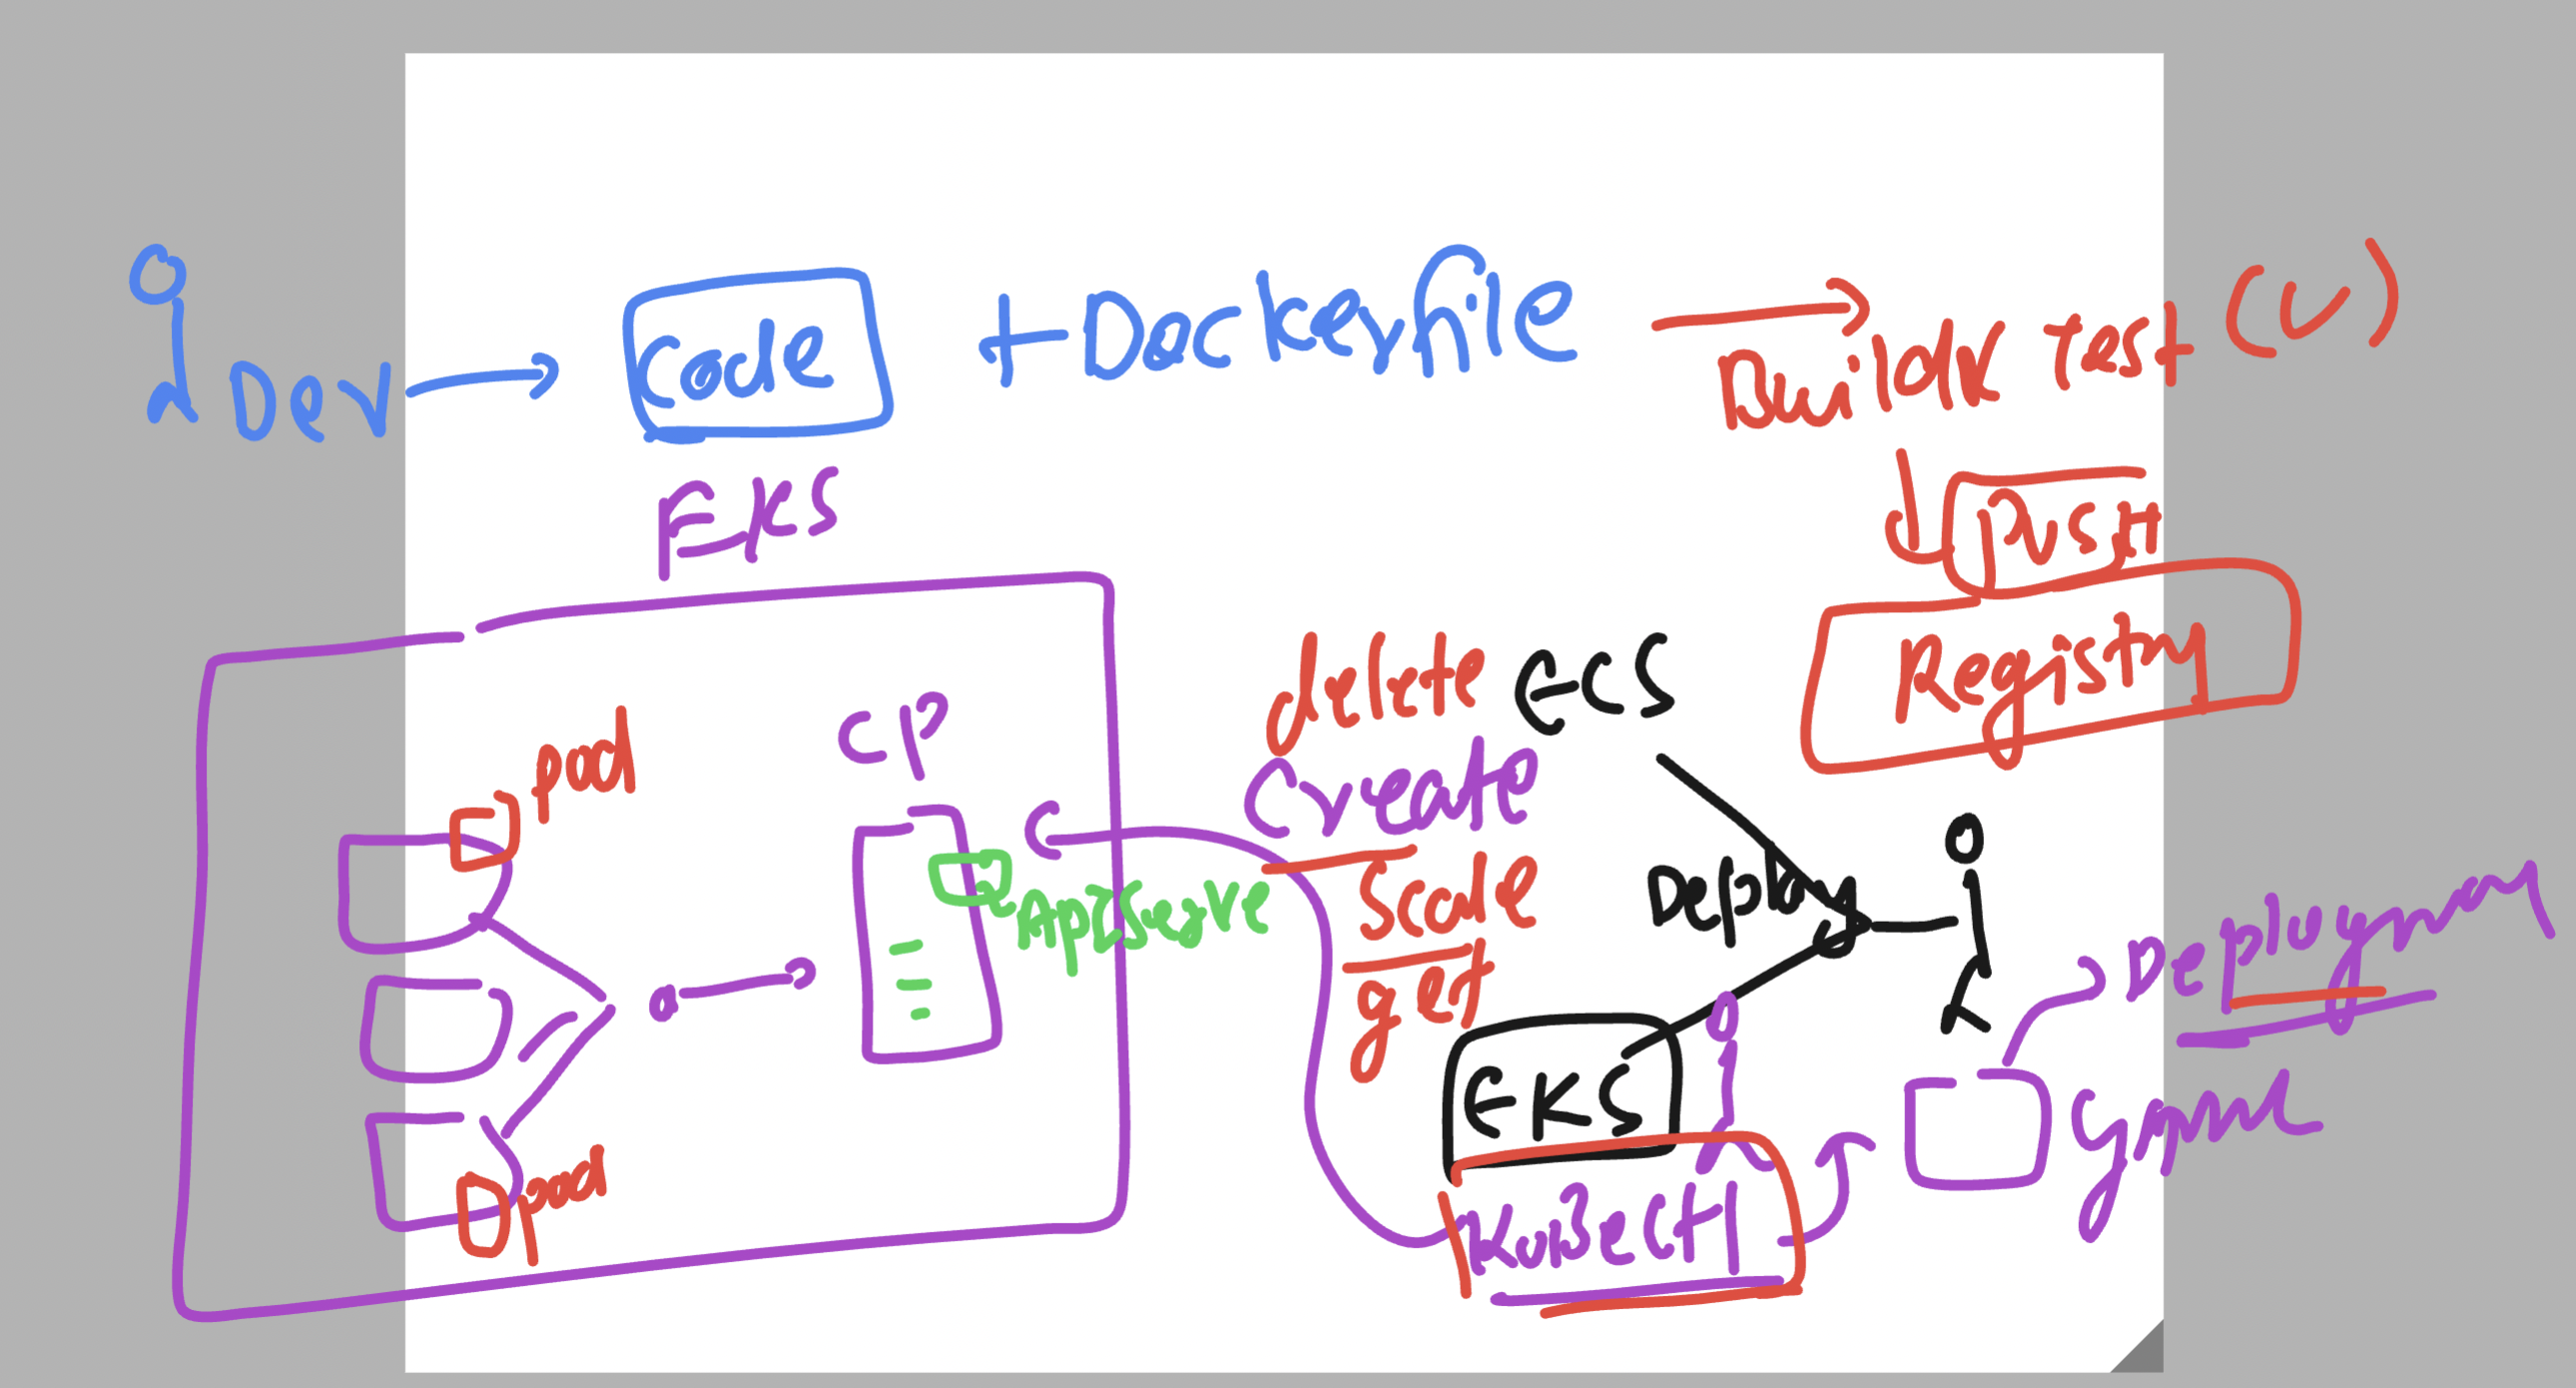 Dev
Code
+ Dockerfile
Build & Test (U)
PUSH
Registry
EKS
CP
pod
ApiServe
pod
delete
create
Scale
get
ECS
Deploy
EKS
KuBectl
Deployment